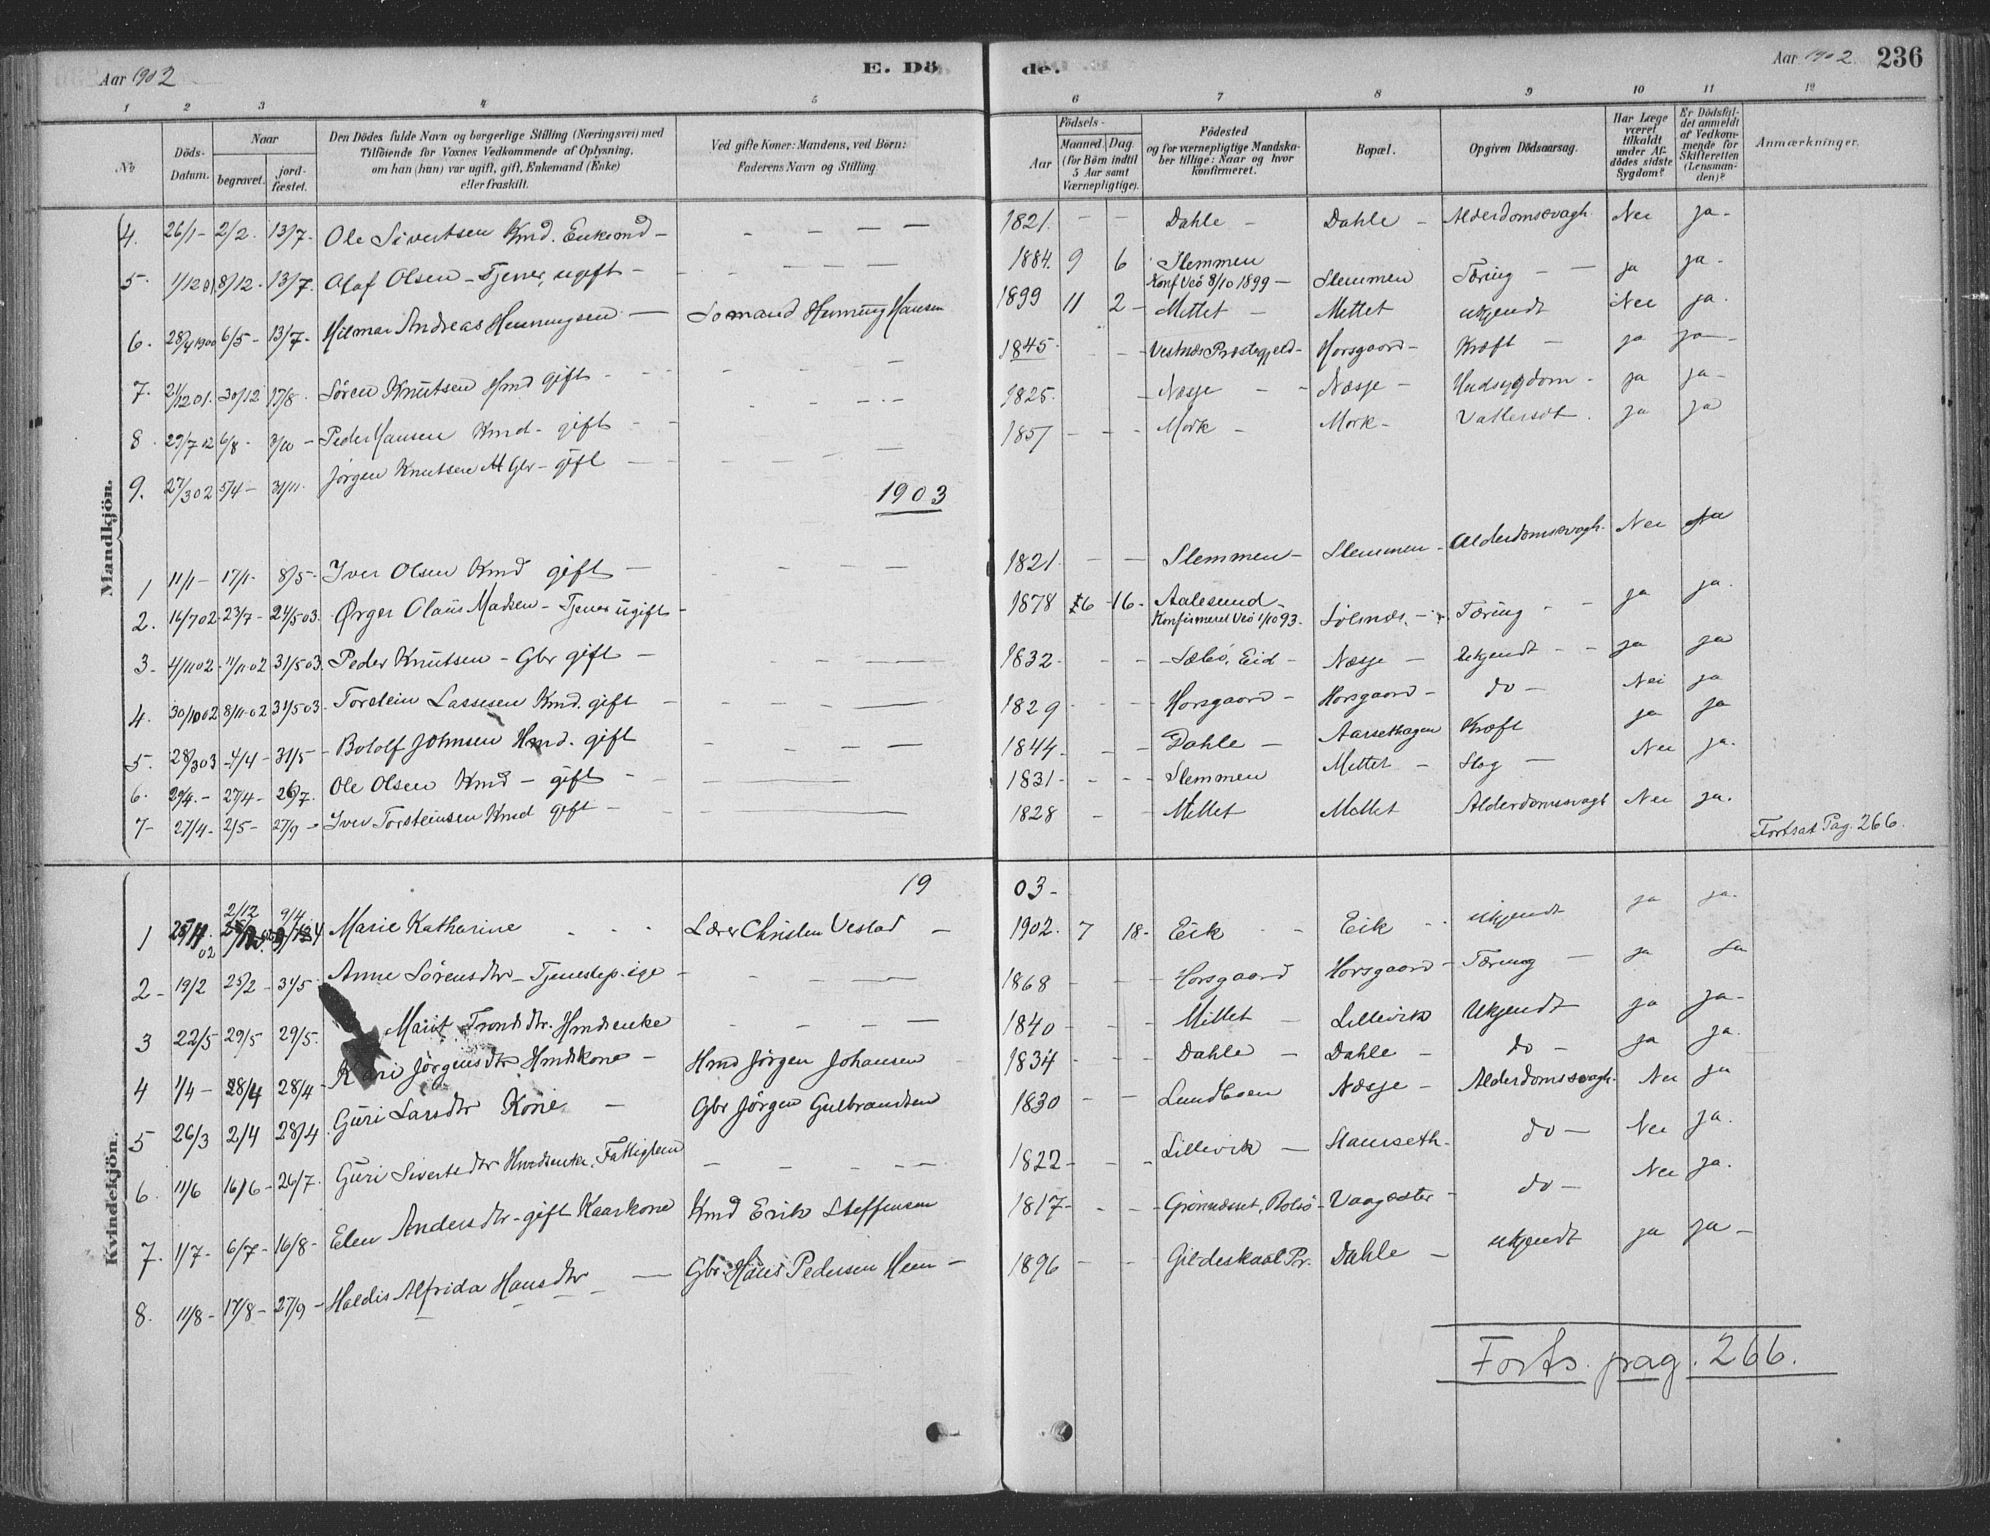 Aar 1902 E. Dö de. Aar 1902. 236
1 2 3 4 5 6 7 8 9 10 11 12
No Döds-Datum. Naar begravet. jord-fæstet. Den Dödes fulde Navn og borgerlige Stilling (Næringsvei) med Tilföiende for Voxnes Vedkommende af Oplysning, om han (hun) var ugift, gift, Enkemand (Enke) eller fraskilt. Ved gifte Koner: Mandens, ved Börn: Faderens Navn og Stilling. Födsels- Aar Maaned. Dag. (for Børn indtil 5 Aar samt Værnepligtige). Födested og for værnepligtige Mandska-ber tillige: Naar og hvor konfirmeret. Bopæl. Opgiven Dödsaarsag. Har Læge været tilkaldt under Af-dödes sidste Sygdom? Er Dödsfal-det anmeldt af Vedkom-mende for Skifteretten (Lensman-den)? Anmærkninger.
Mandkjön.
4. 26/1 - 2/2. 13/7- Ole Sivertsen Kmd. Enkemd - 1821. - - Dahle - Dahle - Alderdomssvagh. Nei ja -
5. 1/12 01 8/12. 13/7. Olaf Olsen - Tjener, ugift - 1884. 9 6 Slemmen Konf Veö 8/10 1899 - Slemmen Tæring - ja ja -
6. 28/4 1900 6/5 - 13/7- Hilmar Andreas Henningsen - Somand Henning Hansen 1899 11 2 - Mittet - Mittet ukjendt Nei ja.
7. 21/12 01. 30/12 17/8. Sören Knutsen Hmd gift - 1845. - - Vestnes Præstegjeld - Horsgaard - Kræft - ja ja -
8. 29/7 02 6/8 - 3/10 - Peder Hansen Kmd - gift - 1825. - Næsje - Næsje - Hudsygdom - ja ja -
9. 27/3 02 5/4 - 31/11. Jørgen Knutsen M Gbr - gift - 1857 - - Mork - Mork - Vattersot. ja ja
1903
1 11/1 - 17/1 - 8/5 - Iver Olsen Kmd gift - 1821. - - Slemmen - Slemmen - Alderdomssvagh. Nei Ja
2. 16/7 02 23/7 - 24/5 03. Ørger Olaus Madsen - Tjener ugift - 1878 6 - 16 - Aalesund - Konfirmeret Veö 1/10 93. - Sølsnes. - Tæring - ja ja.
3 - 4/11 02 - 11/11 02 31/5 03. Peder Knutsen - Gbr gift - 1832 - - - Sæbö, Eid - Næsje - Ukjendt - - ja ja
4. 30/10 02 8/11 02 31/5 03. Torstein Lassesen Kmd. gift - 1829 - Horsgaard - Horsgaard - do - Nei ja
5. 28/3 03 - 4/4 - 31/5 - Botolf Johnsen Hmd. gift 1844 - - - Dahle - Aarsethagen Kræft ja ja
6. 29/4. - 27/4 - 26/7. Ole Olsen Kmd - gift - 1831 - - - Slemmen Mittet - Slag - Nei ja.
7 - 27/4 - 2/5 - 27/9 - Iver Torsteinsen Kmd gift - 1828 - - Mittet Mittet Alderdomssvagh Nei ja. Fortsat Pag. 266.
Kvindekjön.
1903 -
1 25/11 02 2/12 9/4 Marie Katharine - Lærer Christen Vestad - 1902. 7 18 - Eik - Eik - ukjendt ja ja.
2 - 19/2 25/2 - 31/5 - Anne Sörensdtr - Tjenestepige - 1868 - - - Horsgaard Horsgaard - Tæring - ja ja
3 22/5 29/5 29/5. Marit Trondsdtr. Hmdsenke 1840 - - - Mittet - Lillevik Ukjendt ja ja -
4 1/4 - 28/4 28/4 - Kari Jörgensdtr Hmdskone - Hmd Jörgen Johansen 1834 - - - Dahle - Dahle - do - ja ja.
5 26/3 2/4 28/4. Guri Larsdtr Kone - Gbr Jörgen Gulbrandsen 1830 - - Lundboen Næsje - Alderdomssvagh. Nei ja
6. 11/6 16/6 - 26/7. Guri Sivertsdtr Hmdsenke. Fattiglem - 1822 - - - Lillevik - Staurseth - do - Nei ja.
7. 1/7 - 6/7 - 16/8 - Elen Andersdtr - gift Kaarkone Kmd Erik Steffensen 1817 - - - Grönndset, Bolsö - Vaagsæter - do - Nei ja.
8. 11/8 - 17/8 - 27/9 - Haldis Alfrida Hansdtr - Gbr. Hans Pedersen Heen - 1896 - - Gildeskaal Pr. Dahle - ukjendt ja ja -
Forts. pag. 266.